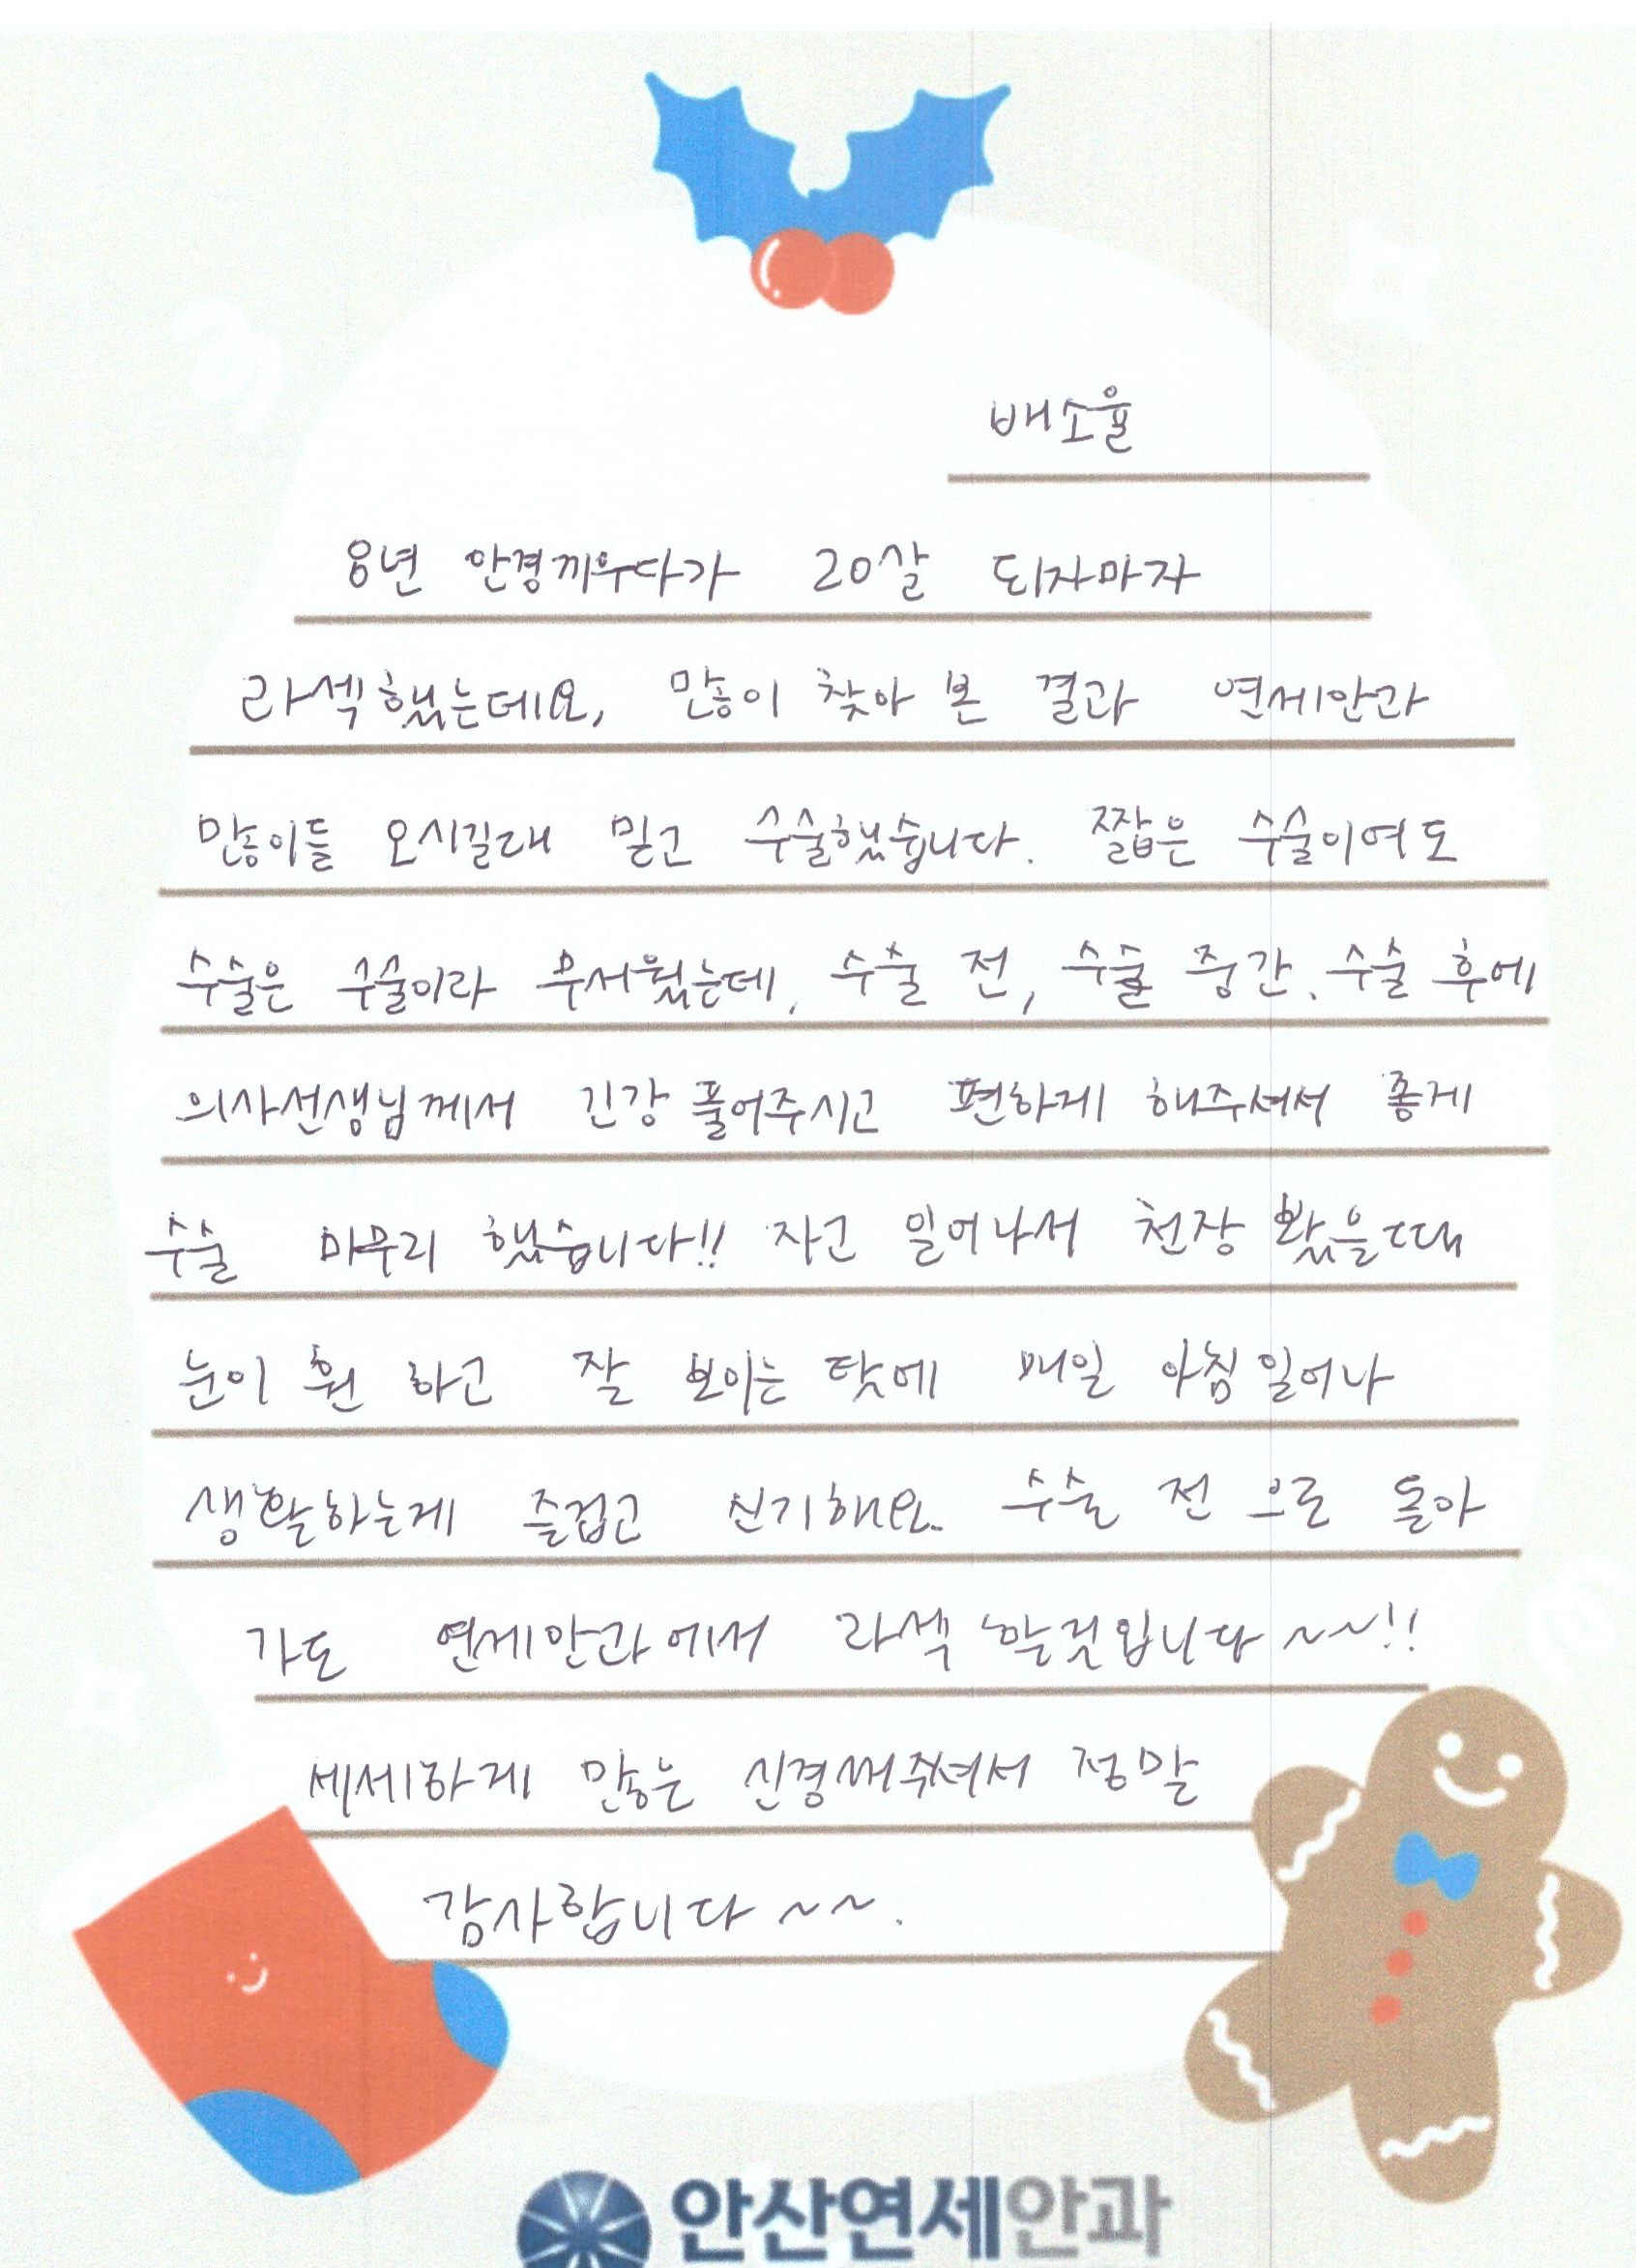 배소율
8년 안경끼우다가 20살 되자마자
라섹했는데요, 많이 찾아 본 결과 연세안과
많이들 오시길래 믿고 수술했습니다. 짧은 수술이여도
수술은 수술이라 무서웠는데, 수술 전, 수술 중간, 수술 후에
의사선생님께서 긴장 풀어주시고 편하게 해주셔서 좋게
수술 마무리 했습니다!! 자고 일어나서 천장 봤을때
눈이 훤 하고 잘 보이는 탓에 매일 아침 일어나
생활하는게 즐겁고 신기해요. 수술 전 으로 돌아
가도 연세안과에서 라섹 할것입니다~~!!
세세하게 많은 신경써주셔서 정말
감사합니다~~.
안산연세안과